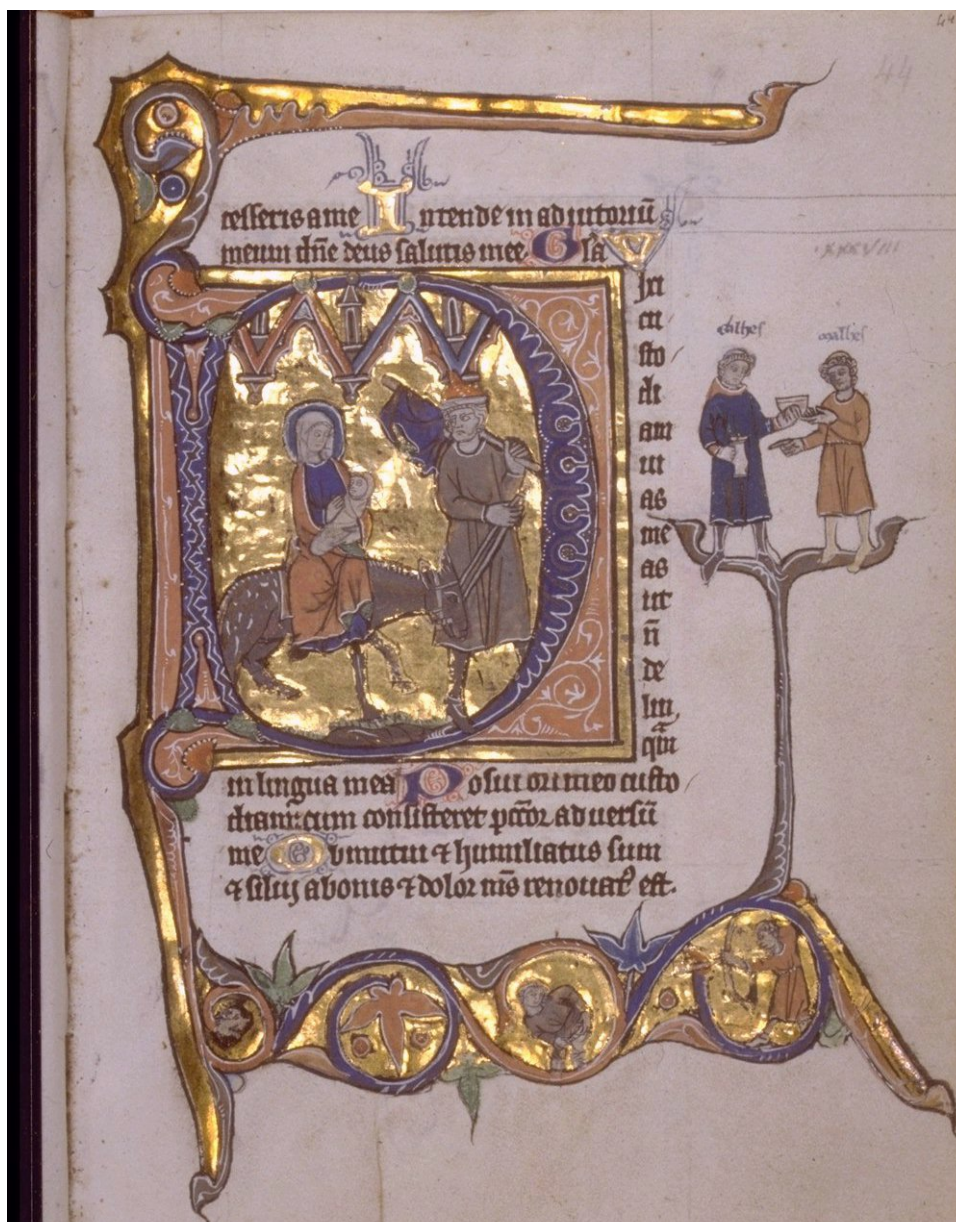 44
44
cesseris a me Intende in adiutoriū
meum dn̄e deus salutis mee. Gl̄a
ixi
cu
sto
di
am
ui
as
me
as
ut
n̄
de
lin,
quā
in lingua mea Posui ori meo custo
diam: cum consisteret pc̄cor aduersū
me Obmutui ⁊ humiliatus sum
⁊ silui a bonis ⁊ dolor m̄s renouat᾿ est.